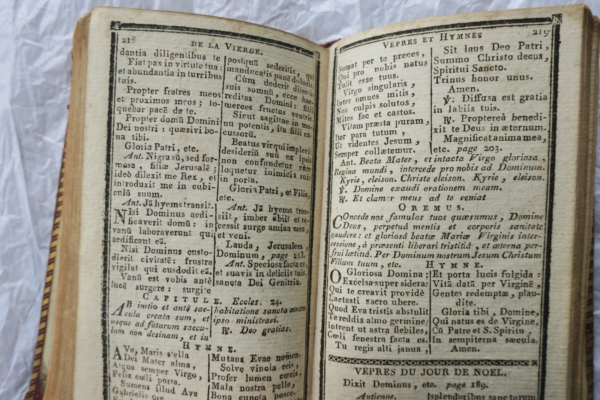 218
DE LA VIERGE.
dantia diligentibus te
Fiat pax in virtute tua:
et abundantia in turribus
tuis.
Propter fratres meos
et proximos meos; lo-
quebar pacē de te.
Propter domū Domini
Dei nostri: quæsivi bo-
na tibi.
Gloria Patri, etc.
Ant. Nigra sū, sed for-
mosa, filiæ Jerusalē;
ideò dilexit me Rex, et
introduxit me in cubi-
culū suum.
Ant. Jā hyems transiit.
NIsi Dominus ædi-
ficaverit domū: in
vanū laboraverunt qui
ædificant eā.
Nisi Dominus custo-
dierit civitatē: frustrà
vigilat qui custodit eā.
Vanū est vobis ante
lucē surgere: surgite
postquā sederitis, qui
manducatis panē doloris.
Cùm dederit dilectis
suis somnū, ecce hæ-
reditas Domini: filii
merces fructus ventris.
Sicut sagittæ in ma-
nu potentis, ita filii ex-
cussorū.
Beatus vir qui implevit
desideriū suū ex ipsis
non confundetur cùm
loquetur inimicis suis
in porta.
Gloria Patri, et Filio,
etc.
Ant. Jā hyems trans-
iit, imber abiit et re-
cessit surge amica mea,
et veni.
Lauda, Jerusalem,
Dominum, page 213.
Ant. Speciosa facta es,
et suavis in deliciis tuis,
sancta Dei Genitrix.
CAPITULE. Eccles. 24.
AB initio et antè sæ-
cula creata sum, et
usque ad futurum sæcu-
lum non desinam, et in
habitatione sancta coram
ipso ministravi.
℟. Deo gratias.
HYMNE.
AVe, Maris stella
Dei Mater alma,
Atque semper Virgo,
Felix cœli porta.
Sumens illud Ave
Gabrielis
Mutans Evæ nomen.
Solve vincla reis,
Profer lumen cæcis,
Mala nostra pelle,
Bona cuncta posce.
VEPRES ET HYMNES
219
Sumat per te preces,
Qui pro nobis natus
Tulit esse tuus.
Virgo singularis,
Inter omnes mitis,
Nos culpis solutos,
Mites fac et castos.
Vitam præsta puram,
Iter para tutum,
Ut videntes Jesum,
Semper collætemur.
Sit laus Deo Patri,
Summo Christo decus,
Spiritui Sancto.
Trinus honor unus.
Amen.
℣. Diffusa est gratia
in labiis tuis.
℟. Propterea benedi-
xit te Deus in æternum.
Magnificat anima mea,
etc. page 203.
Ant. Beata Mater, et intacta Virgo gloriosa,
Regina mundi, intercede pro nobis ad Dominum.
Kyrie, eleison. Christe eleison. Kyrie, eleison.
℣. Domine exaudi orationem meam.
℟. Et clamor meus ad te veniat
OREMUS.
COncede nos famulos tuos quæsumus, Domine
Deus, perpetuâ mentis et corporis sanitate
gaudere: et gloriosâ beatæ Mariæ Virginis inter-
cessione, à præsenti liberari tristitiâ, et æterna per-
frui lætitiâ. Per Dominum nostrum Jesum Christum
Filium tuum, etc.
HYMNE.
OGloriosa Domina
Excelsa super sidera:
Qui te creavit providè
Lactasti sacro ubere.
Quod Eva tristis abstulit
Tu reddis almo germine:
Intrent ut astra flebiles,
Cœli fenestra facta es.
Tu regis alti janua,
Et porta lucis fulgida:
Vitā datā per Virginē,
Gentes redemptæ, plau-
dite.
Gloria tibi, Domine,
Qui natus es de Virgine,
Cū Patre et S. Spiritu,
In sempiterna sæcula.
Amen.
VEPRES DU JOUR DE NOEL.
Dixit Dominus, etc. page 189.
Antienne.
splendoribus sanctorum